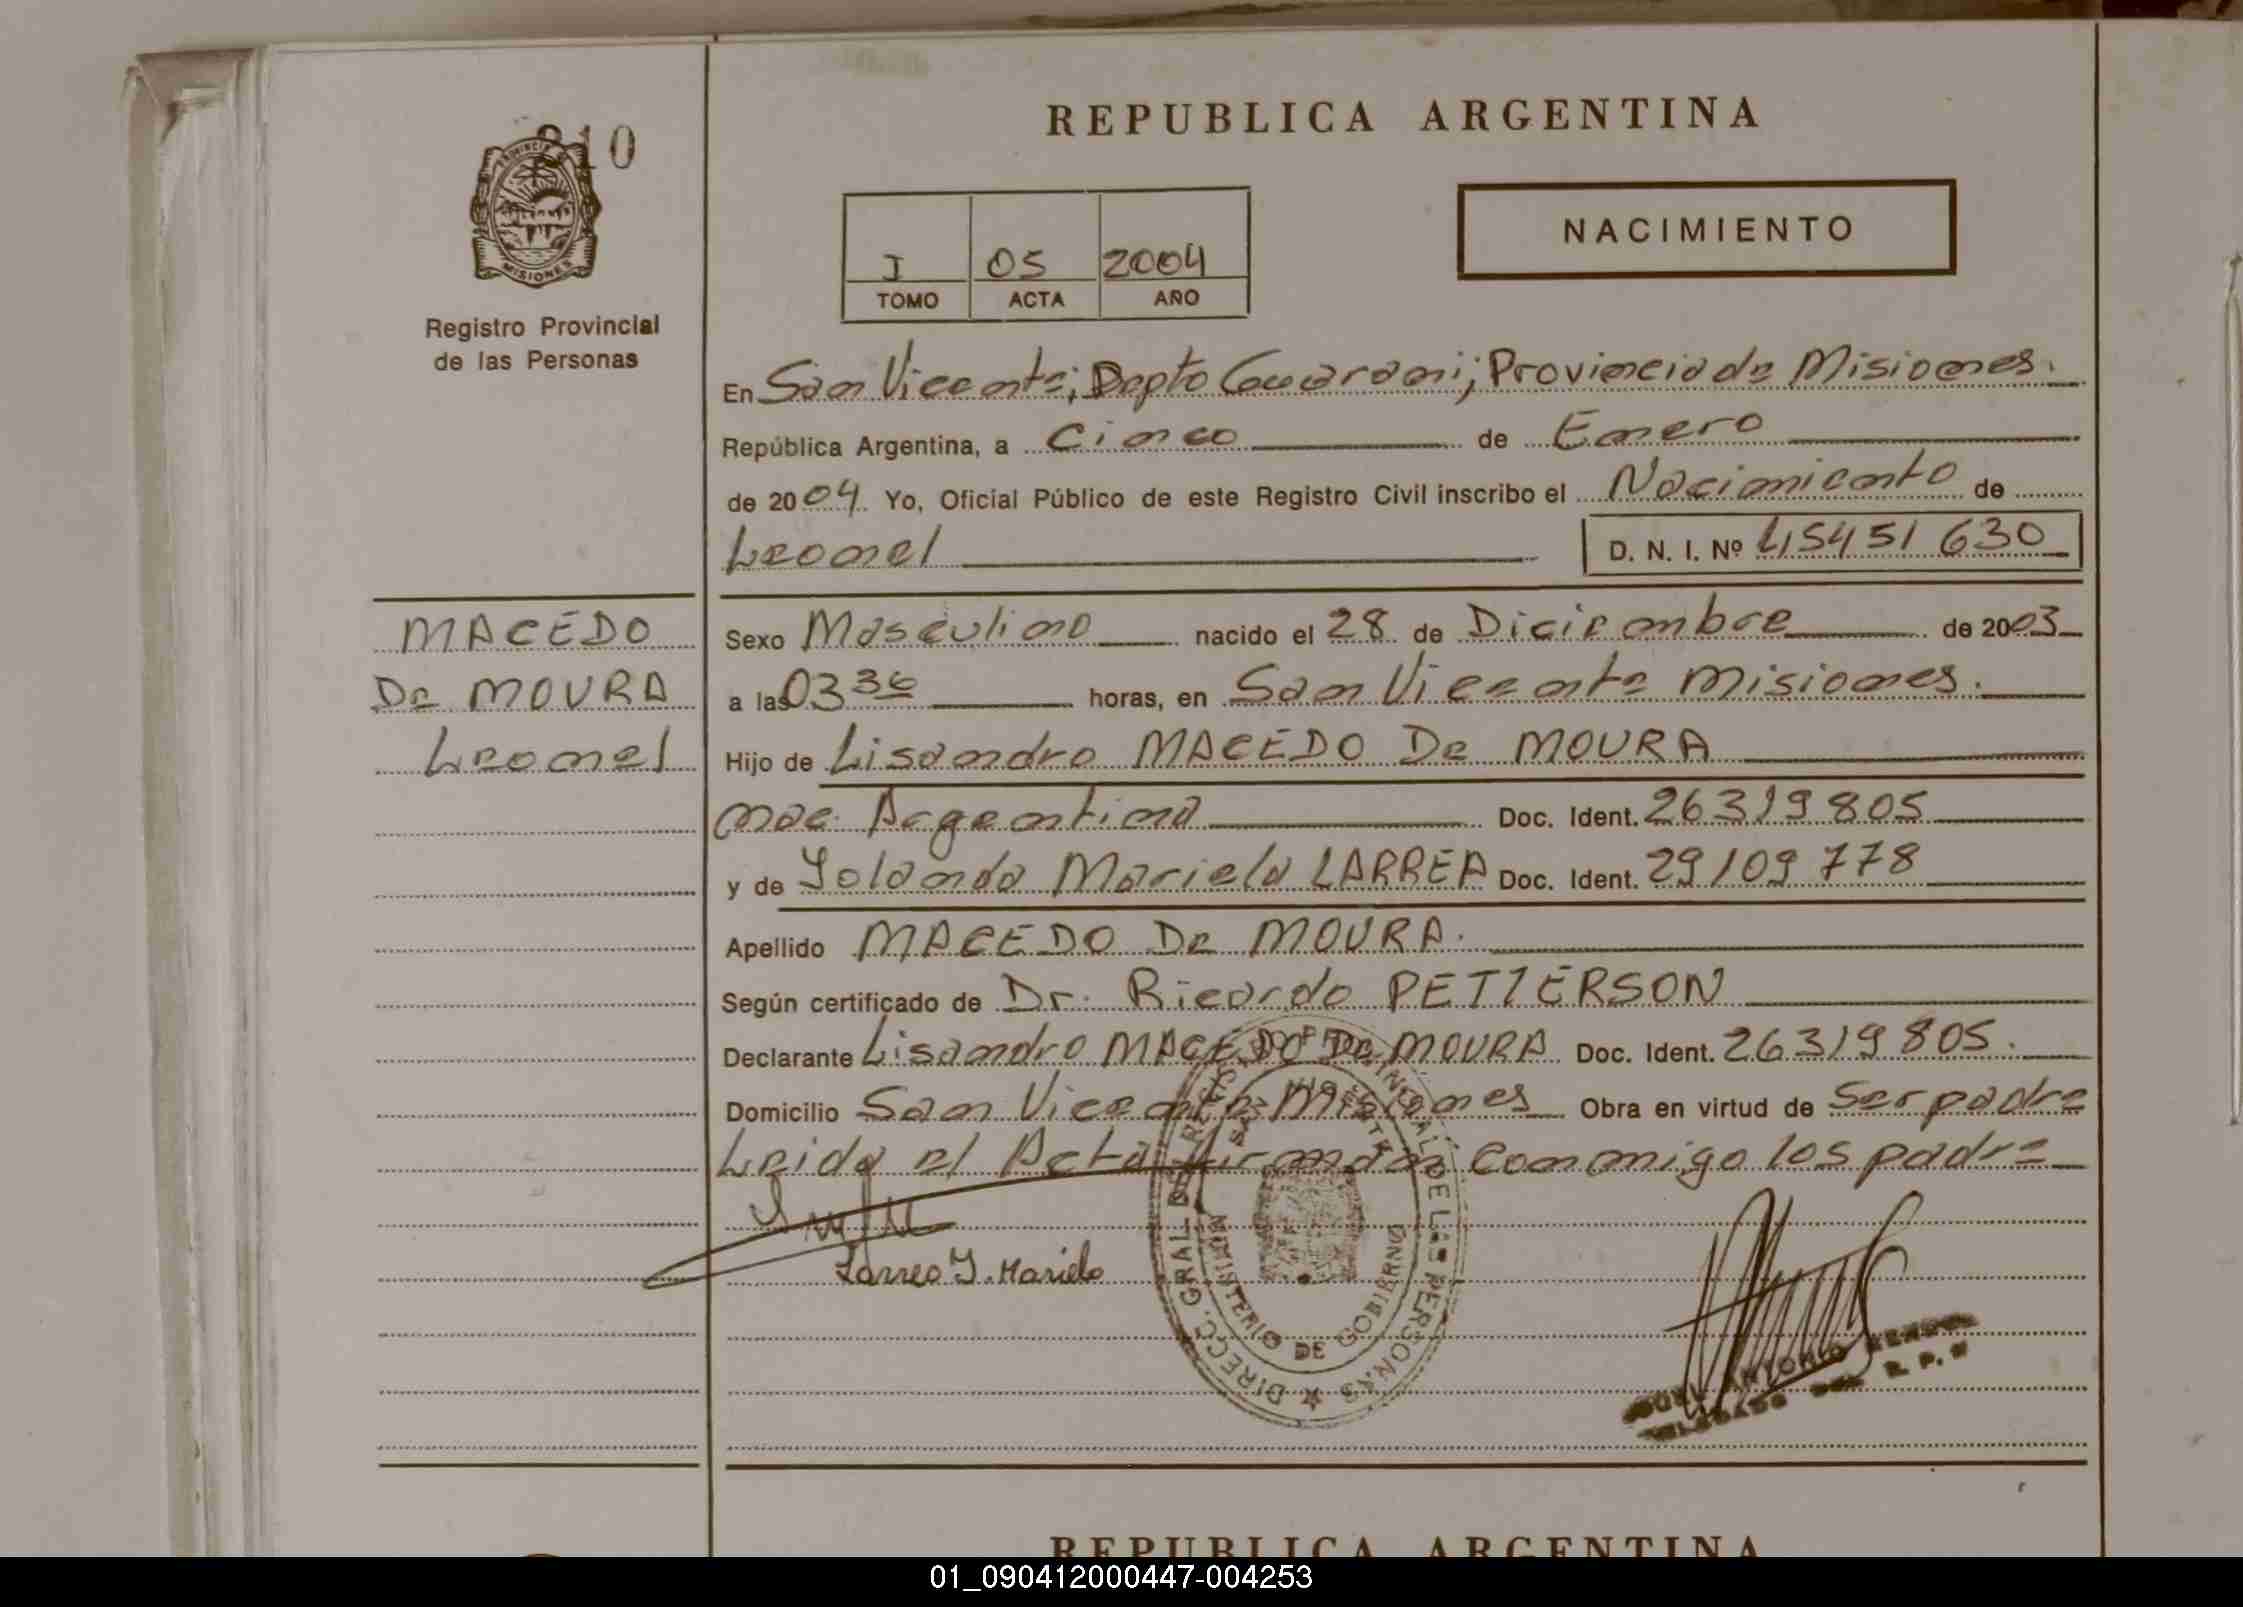 210
PROVINCIA
MISIONES
Registro Provincial
de las Personas
REPUBLICA ARGENTINA
I 05 2004
TOMO ACTA AÑO
NACIMIENTO
En San Vicente; Depto Guarani; Provincia de Misiones.
República Argentina, a Cinco de Enero
de 2004. Yo, Oficial Público de este Registro Civil inscribo el Nacimiento de
Leonel D. N. I. Nº 45451 630
MACEDO
De MOURA
Leonel
Sexo Masculino nacido el 28 de Diciembre de 2003
a las 03 36 horas, en San Vicente Misiones.
Hijo de Lisandro MACEDO De MOURA
nac. Argentina Doc. Ident. 26319805
y de Yolanda Mariela LARREA Doc. Ident. 29109778
Apellido MACEDO De MOURA.
Según certificado de Dr. Ricardo PETTERSON
Declarante Lisandro MACEDO De MOURA Doc. Ident. 26319805.
Domicilio San Vicente Misiones Obra en virtud de Ser padre
Leida el Acta firman conmigo los padre
Larrea Y. Mariela
DIRECC. GRAL. DEL REGISTRO PROVINCIAL DE LAS PERSONAS
MINISTERIO DE GOBIERNO
ANTONIO
DELEGADO DEL R. P. P.
REPUBLICA ARGENTINA
01_090412000447-004253